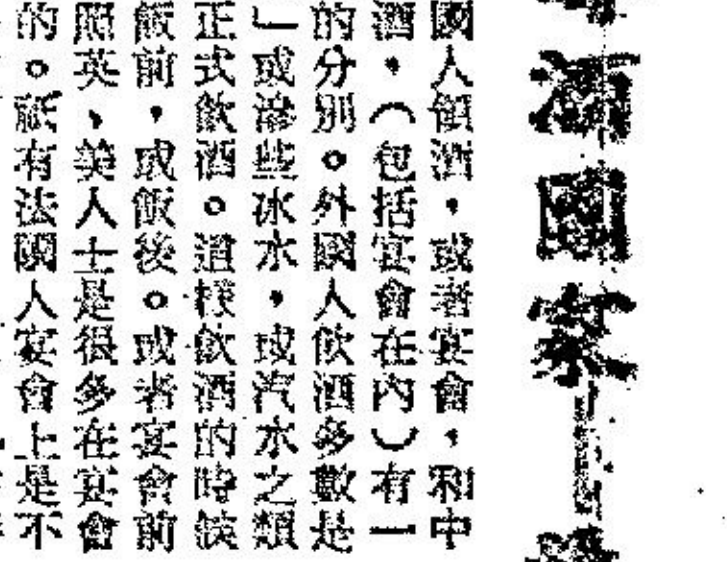 酒國家—
國人領酒，或者宴會，和中
酒，（包括宴會在內）有一
的分別。外國人飲酒多數是
」或滲些冰水，或汽水之類
正式飲酒。這樣飲酒的時候
飯前，或飯後。或者宴會前
照英、美人士是很多在宴會
的。祇有法國人宴會上是不